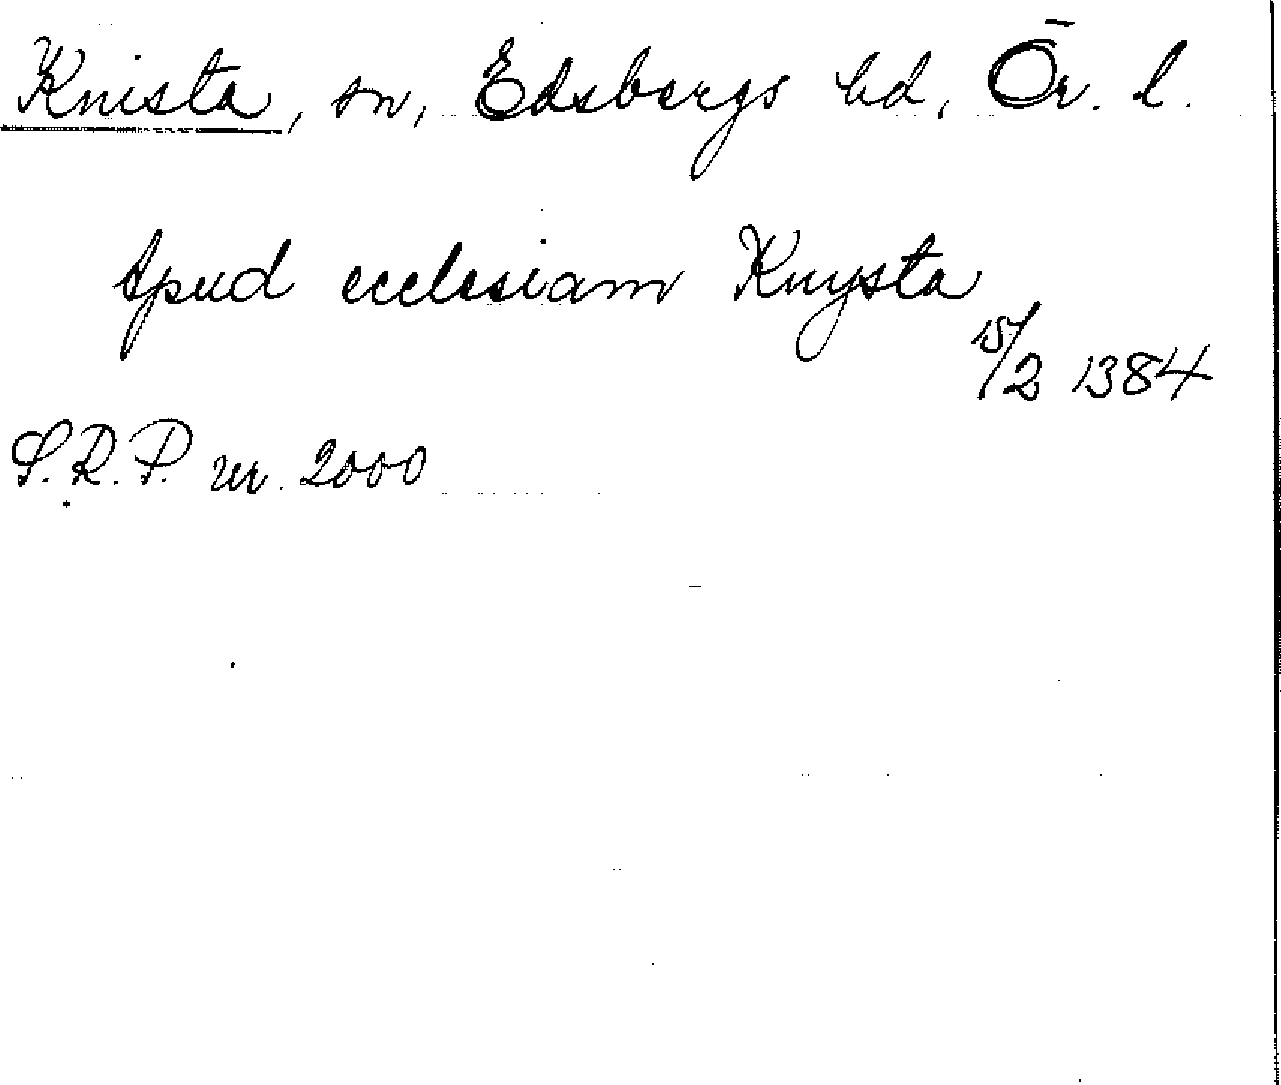 Knista, sn, Edsbergs hd, Ör. l.
Apud ecclesiam Knysta
15/2 1384
S.R.P. nr. 2000